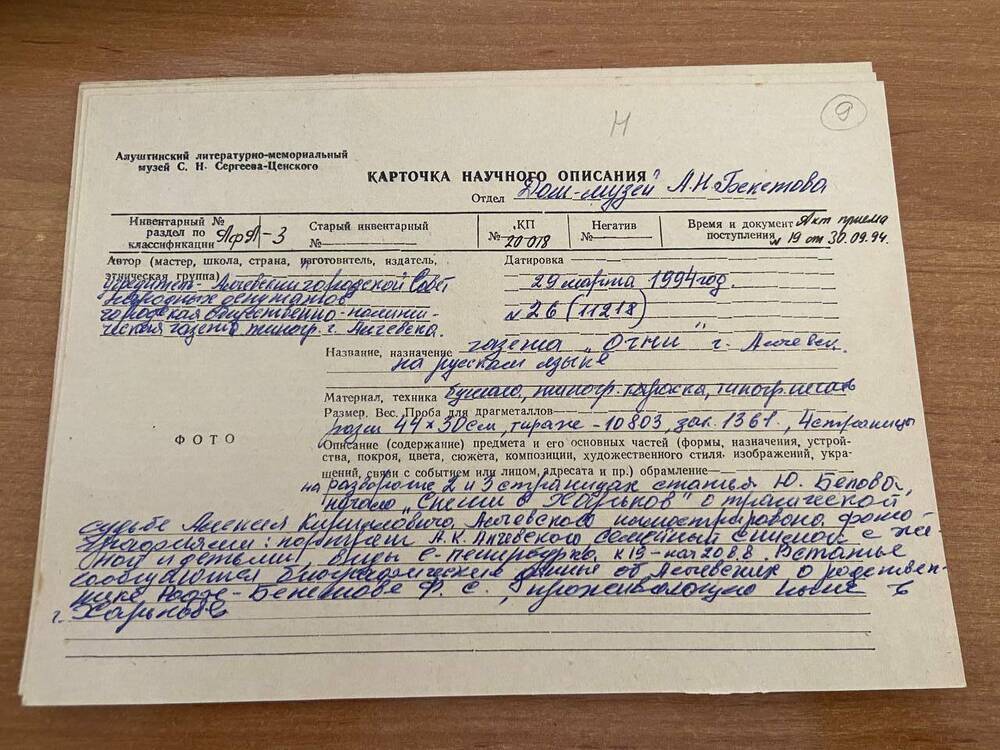 Н
9
Алуштинский литературно-мемориальный
музей С. Н. Сергеева-Ценского
КАРТОЧКА НАУЧНОГО ОПИСАНИЯ
Отдел Дом-музей А.Н. Бекетова
Инвентарный №
раздел по
классификации АфА-3
Старый инвентарный
№
КП
№ 20 018
Негатив
№
Время и документ Акт приема
поступления № 19 от 30.09.94.
Автор (мастер, школа, страна, изготовитель, издатель,
этническая группа)
учредитель- Алчевский городской Совет
народных депутатов
городская общественно-полити-
ческая газета типогр. г. Алчевска.
Датировка
29 марта 1994 год.
№ 26 (11218)
Название, назначение газета „Огни" г. Алчевск.
на русском языке
Материал, техника бумага, типогр. краска, типогр. печать
Размер. Вес. Проба для драгметаллов
разм 44×30 см, тираж - 10803, зак. 1361., 4 страницы
ФОТО
Описание (содержание) предмета и его основных частей (формы, назначения, устрой-
ства, покроя, цвета, сюжета, композиции, художественного стиля, изображений, укра-
шений, связи с событием или лицом, адресата и пр.) обрамление
на развороте 2 и 3 страницах статья Ю. Белова,
начало „ в Харьков" о трагической
судьбе Алексея Кирилловича Алчевского иллюстрировано фото-
графиями: портрет А.К. Алчевского семейный снимок с же-
ной и детьми, виды С-петербурга к 19 - нач 20 в.в. В статье
сообщаются биографические данные об Алчевских о родствен-
нике Бекетове Ф. С., проживающего ныне в
г. Харькове